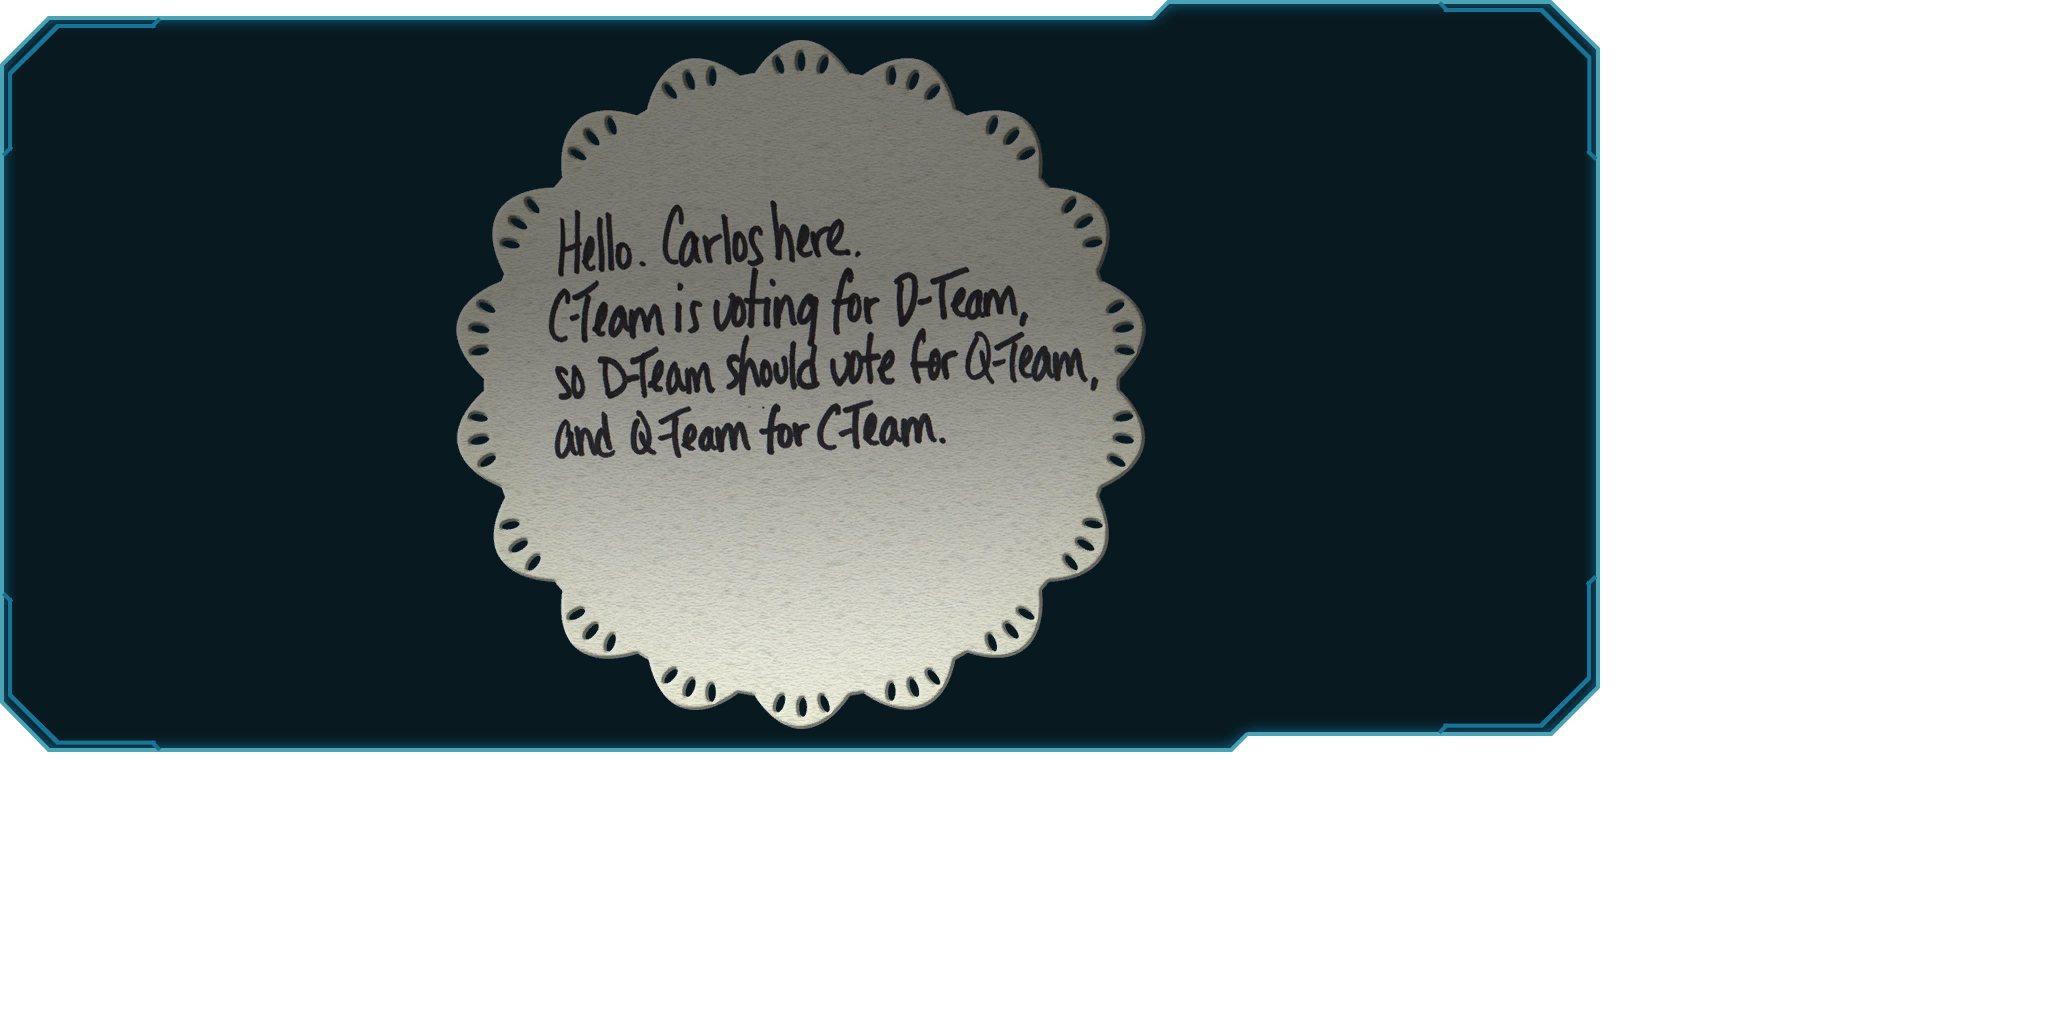 Hello. Carlos here.
C-Team is voting for D-Team,
so D-Team should vote for Q-Team,
and Q-Team for C-Team.